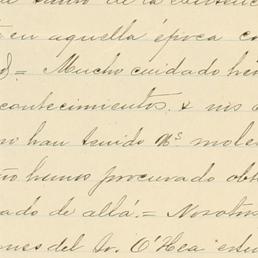 de la
en aquella época co
= Mucho cuidado hem
contecimientos. & nos
no han tenido Ns mole
ño hemos procurado obt
ado de allá. = Nosotros
ones del Sr. O'Hea estu